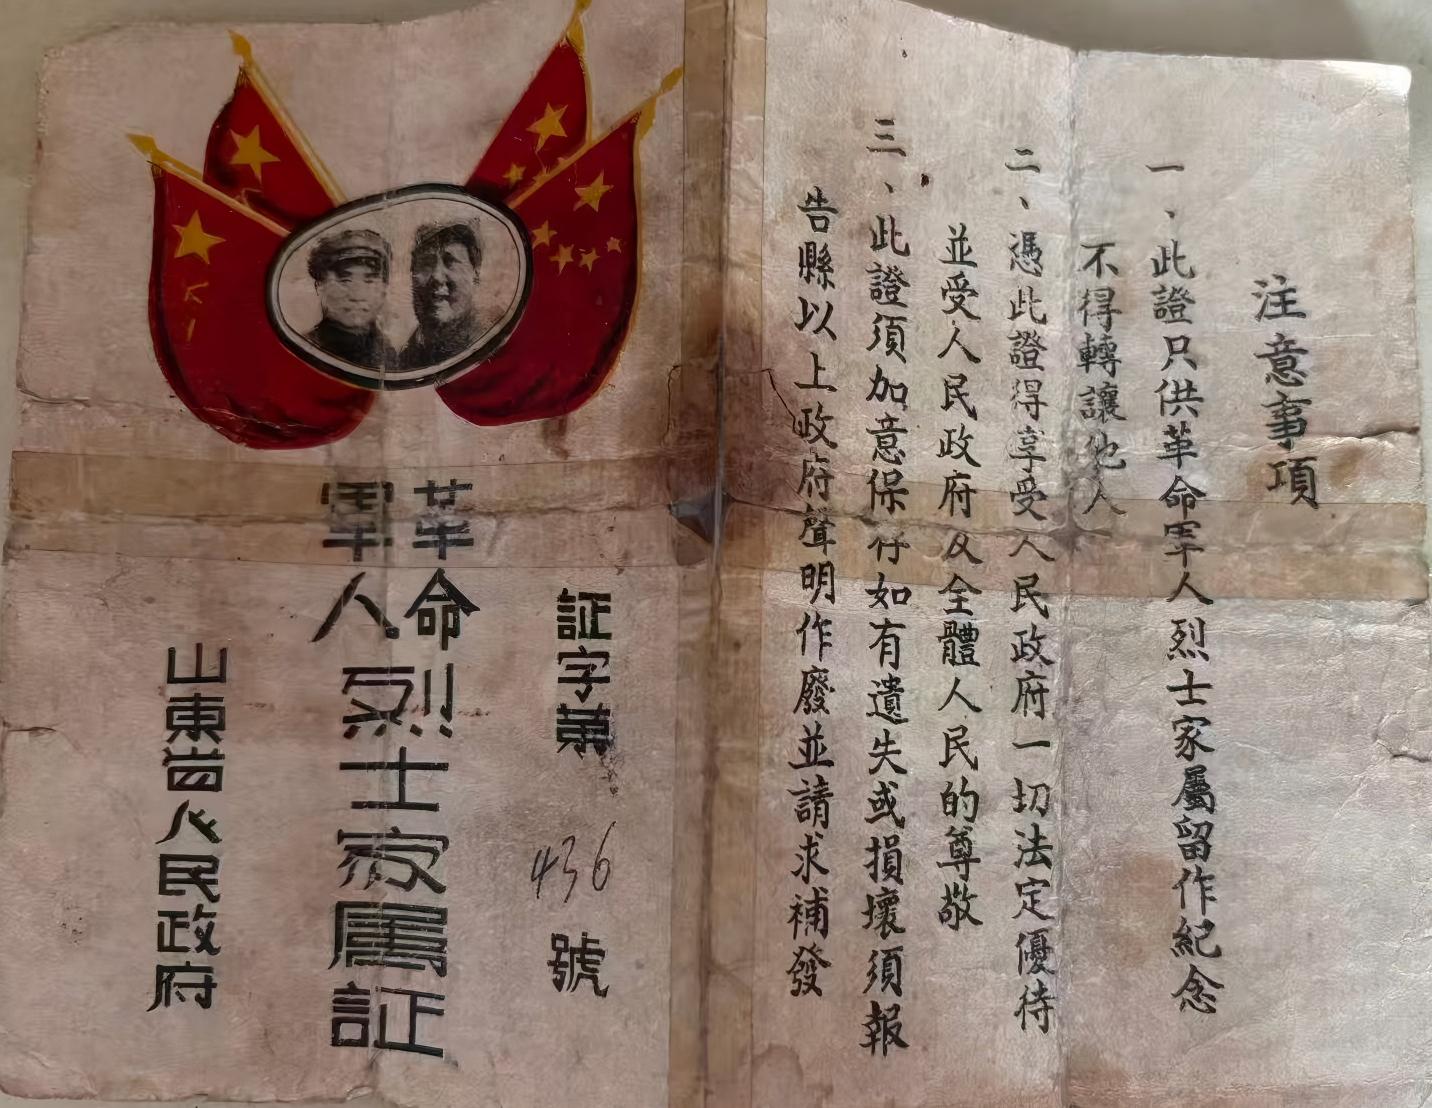 注意事項
一、此證只供革命軍人烈士家屬留作紀念
不得轉讓他人
二、憑此證得享受人民政府一切法定優待
並受人民政府及全體人民的尊敬
三、此證須加意保存如有遺失或損壞須報
告縣以上政府聲明作廢並請求補發
証字第436號
革命
軍人
烈士家屬証
山東省人民政府